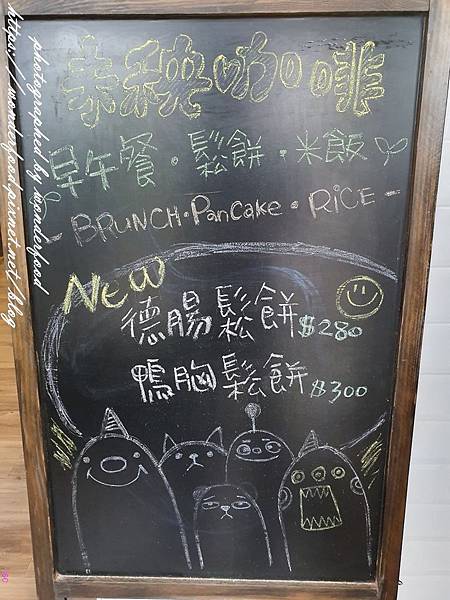 未稅咖啡
早午餐・鬆餅・米飯
- BRUNCH・Pancake・RiCE -
New
德腸鬆餅 $280
鴨胸鬆餅 $300
photographed by wonderfood
https://wonderfood.pixnet.net/blog